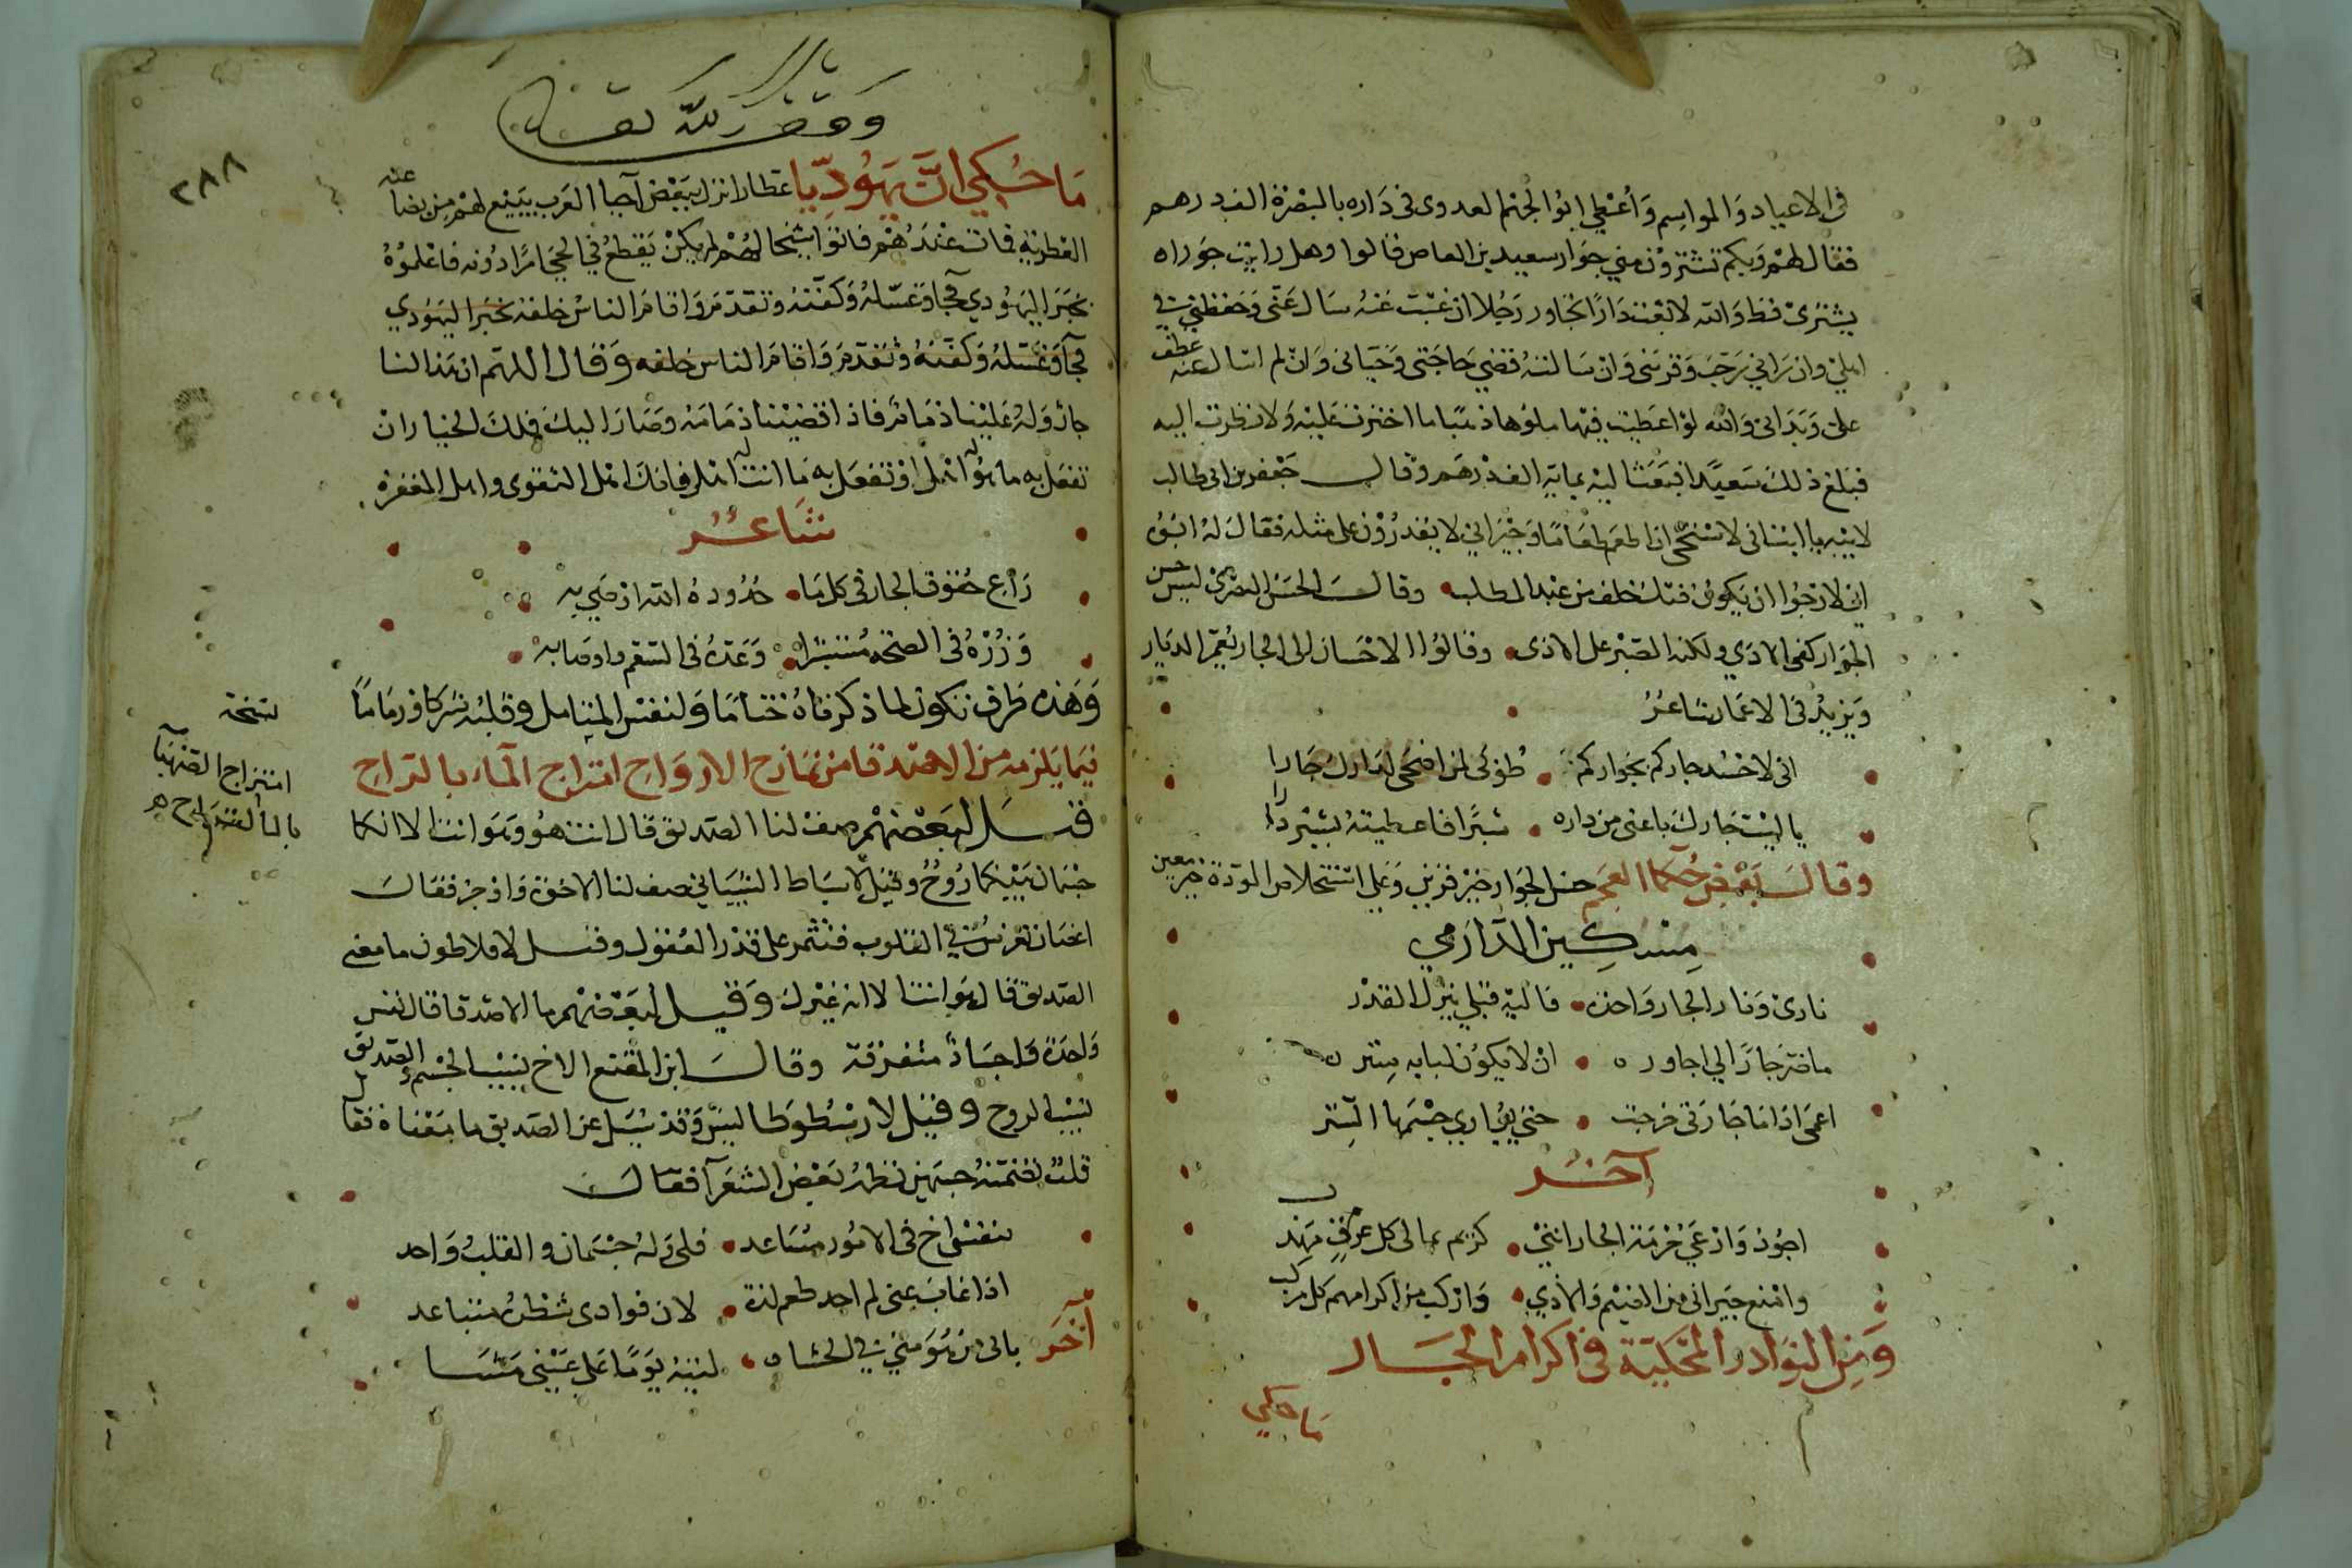 في الاعياد والمواسم وأعطي ابو الجهم العدوى فى داره بالبصرة الف درهم
فقال لهم وبكم تشترون مني جوار سعيد بن العاص فالوا وهل رايت جوراه
يشترى قط والله لا بعت دارا تجاور رجلا ان غبت عنه سال عنى وحفظني في
اهلي وان راني رحب وقربنى وان سالته قضي حاجتى وحيانى وان لم اساله عطف
على وبدانى والله لو اعطيت فيها ملوها ذهبا ما اخترت عليه ولا نظرت اليه
فبلغ ذلك سعيدا فبعث اليه بماية الف درهم وقال جعفر بن ابى طالب
لابيه يا ابت انى لاستحى ان اطعم طعاما وجيراني لا يقدرون على مثله فقال له ابوه
انى لارجوا ان يكون فيك خلف من عبد المطلب وقال الحسن البصرى ليس حسن
الجوار كفى الاذي ولكنه الصبر على الاذى وقالوا الاحسان الى الجار يعمر الديار
ويزيد فى الاعمار شاعر
انى لاحسد جاركم بجواركم طوبى لمن اضحى لدارك جارا
يا ليت جارك باعنى من داره شبرا فاعطيته بشبر دارا
وقال بعض حكما العجم حسن الجوار خير قرين وعلى استنحلاص المودة خير معين
مسكين الدارمي
نارى ونار الجار واحدة فاليه قبلي ينزل القدر
ما ضر جارا الي اجاوره ان لا يكون لبابه ستر
اعمى اذا ما جارتى خرجت حتى يواري جسمها الستر
آخر
اجود وارعي حرمة الجار انني كريم بمالى كل عرف مهذب
وامنع جيرانى من الضيم والاذي واركب من اكرامهم كل مركب
ومن النوادر المحكية فى اكرام الجار
ما حكي
وقف لله تعالى
٢٨٨
ما حكي ان يهوديا عطارا نزل ببعض احيا العرب يبيع لهم من بضاعته
العطرية فمات عندهم فاتوا شيخا لهم لم يكن يقطع في الحي امرا دونه فاعلموه
بخبر اليهودي فجا وغسله وكفنه وتقدم واقام الناس خلفه بخبر اليهودي
فجا وغسله وكفنه وتقدم واقام الناس خلفه وقال اللهم ان هذا لنا
جار وله علينا ذمام فاذا قضيتنا ذمامه وصار اليك فلك الخيار ان
تفعل به ما هو اهله او تفعل به ما انت له اهل فانك اهل التقوى واهل المغفرة
شاعر
راع حقوق الجار فى كل ما حدوده الله اوصي به
وزره فى الصحة مستبشرا وعده فى السقم واوصابه
وهذه طرف تكون لما ذكرناه ختاما ولنفس المتامل وقلبه شركا وزماما
فيما يلزمه من الاصدقا من تمازج الارواح امتزاج الماء بالراح
نسخة
امتزاج الصهبا
بالما القراح
قيل لبعضهم صف لنا الصديق قال انت هو وهو انت الا انكما
جسمان بينكما روح وقيل لاسباط الشيباني صف لنا الاخوة واوجز فقال
اغصان تغرس في القلوب فتثمر على قدر العقول وقيل لافلاطون ما معنى
الصديق قال هو انت الا انه غيرك وقيل لبعضهم ما الاصدقا قال نفس
واحدة واجساد متفرقة وقال ابن المقفع الاخ نسيب الجسم والصديق
نسيب الروح وقيل لارسطوطاليس وقد سئل عن الصديق ما معناه فقال
قلب تضمنه جسمين نظمه بعض الشعرآ فقال
بنفسي اخ فى الامور مساعد فلى وله جسمان والقلب واحد
اذا غاب عنى لم اجد طعم لذة لان فوادى شطره متباعد
آخر بابى من هو مني في الحشا ليته يوما على عينى مشا